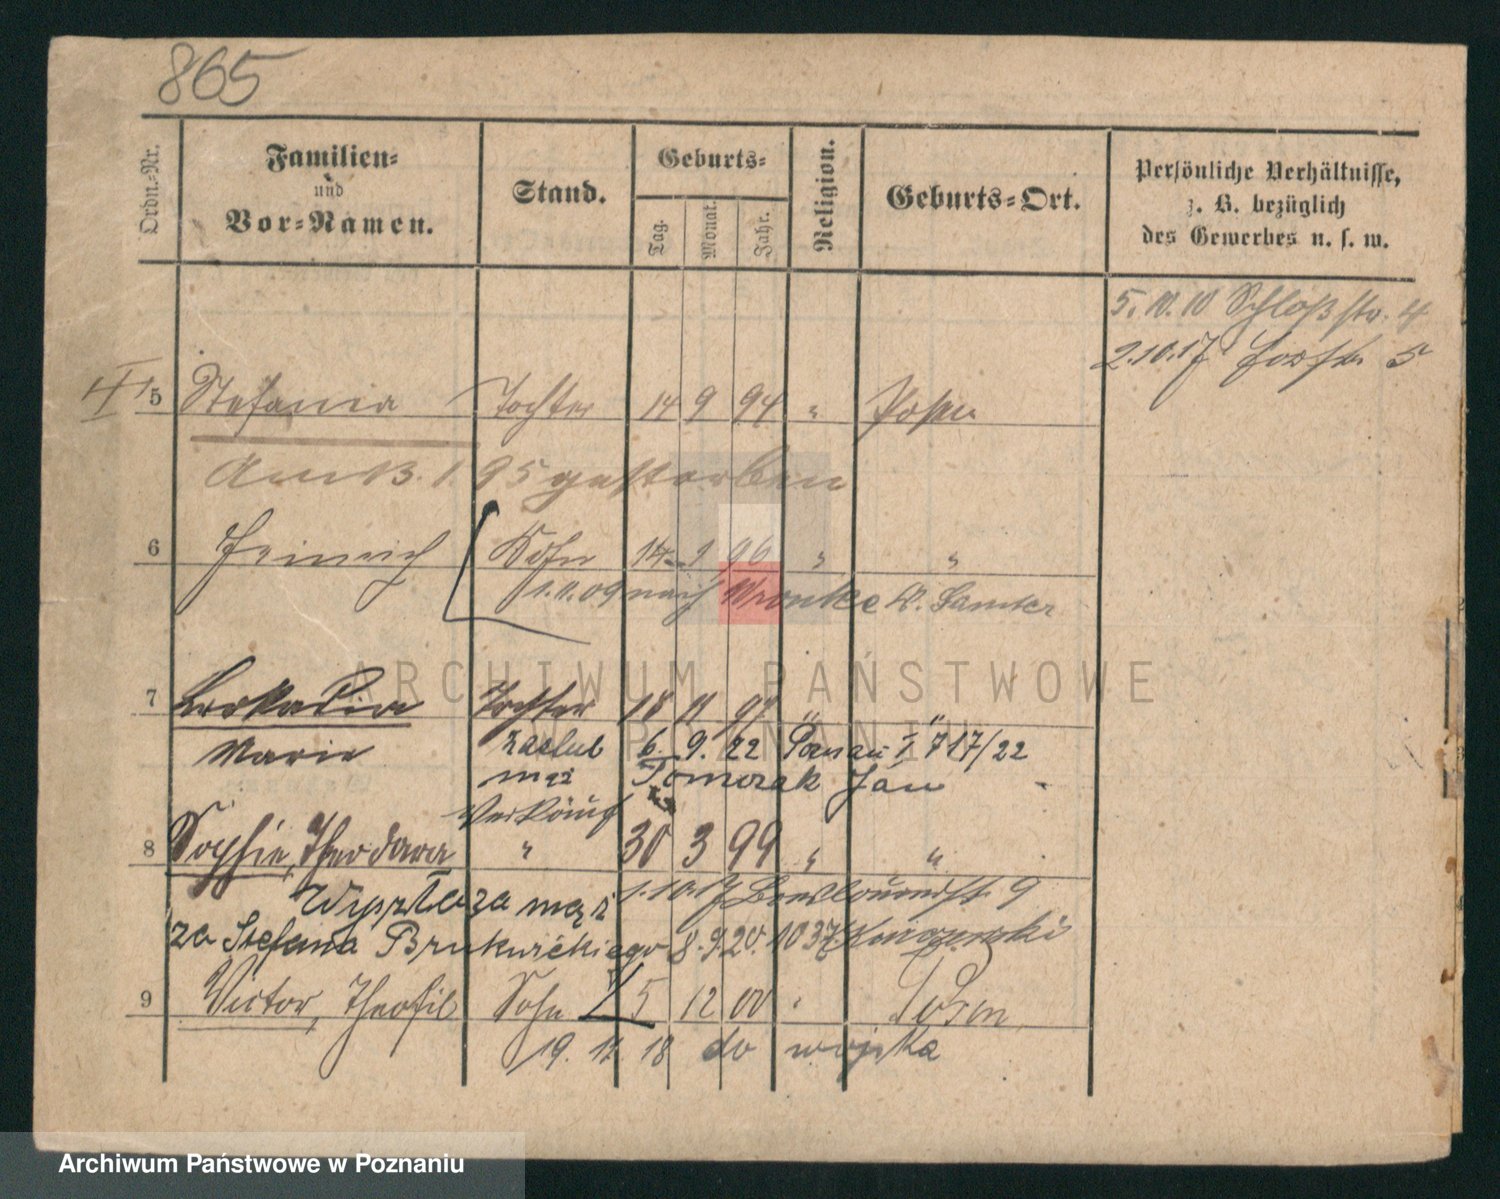 865
Ordn.-Nr.
Familien-
und
Vor-Namen.
Stand.
Geburts-
Tag.
Monat.
Jahr.
Religion.
Geburts-Ort.
Persönliche Verhältnisse,
z. B. bezüglich
des Gewerbes u. s. w.
5. 10. 10 Schloßstr. 4
2.10.17 5
5 Stefania Tochter 14 9 94 " Posen
Am 13. 1. 95 gestorben
6 Heinrich Sohn 14 9 96 " "
1. 11. 09 nach Wronke K. Samter
7 Leokadia Tochter 18 11 97 " "
Marie zaślub 6. 9. 22 Poznań I 717/22
mąż Pomorak Jan
Verkäuf
8 Sophie, Theodora " 30 3 99 " "
1. 10. 17 9
Wyszła za mąż
za Stefana 8. 9. 20. 1037
9 Victor, Theofil Sohn 5 12 00 " Posen
19. 11 18 do wojska
ARCHIWUM PAŃSTWOWE
W POZNANIU
Archiwum Państwowe w Poznaniu